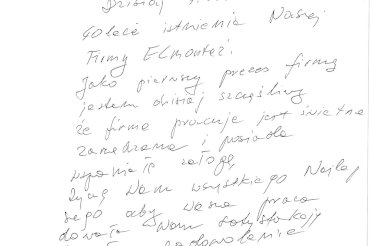 Dzisiaj
40 lecie istnienia Naszej
Firmy Elmontaż.
Jako pierwszy prezes firmy
jestem dzisiaj szczęśliwy
że firma pracuje jest świetnie
zarządzana i posiada
wspaniałą załogę
Życzę Wam wszystkiego Najlep
szego aby Wasza praca
dawała Wam satysfakcję
zadowolenie